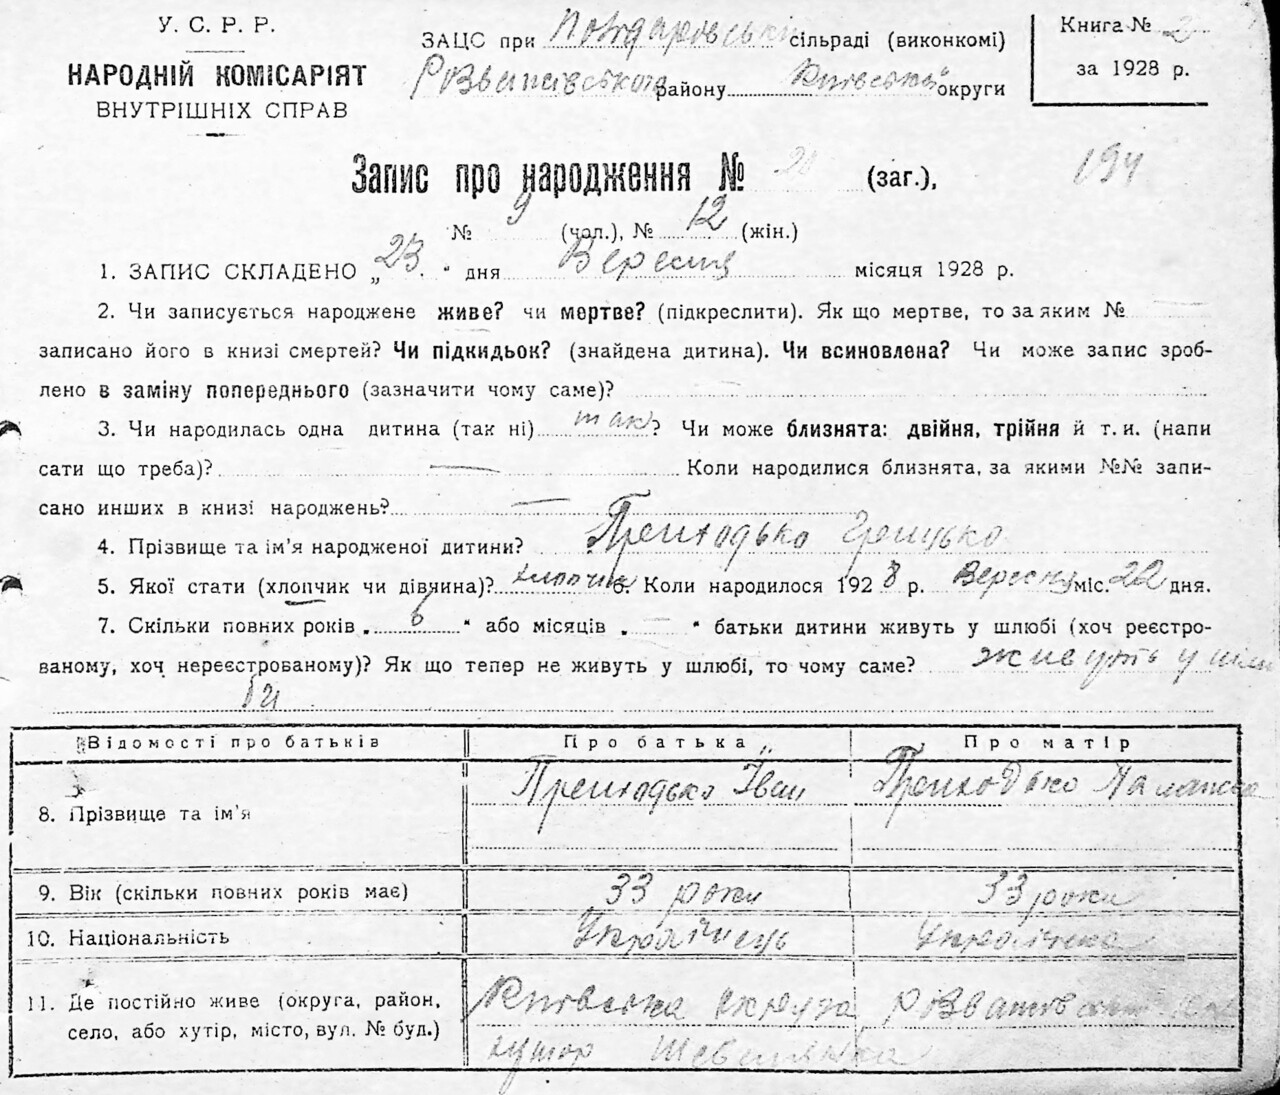 У. С. Р. Р.
НАРОДНІЙ КОМІСАРІЯТ
ВНУТРІШНІХ СПРАВ
ЗАЦС при сільраді (виконкомі)
району Київської округи
Книга № 2
за 1928 р.
Запис про народження № (заг.),
194
№ 9 (чол.), № 12 (жін.)
1. ЗАПИС СКЛАДЕНО „23" дня Вересня місяця 1928 р.
2. Чи записується народжене живе? чи мертве? (підкреслити). Як що мертве, то за яким №
записано його в книзі смертей? Чи підкидьок? (знайдена дитина). Чи всиновлена? Чи може запис зроб-
лено в заміну попереднього (зазначити чому саме)?
3. Чи народилась одна дитина (так ні) так? Чи може близнята: двійня, трійня й т. и. (напи
сати що треба)? — Коли народилися близнята, за якими №№ запи-
сано инших в книзі народжень? —
4. Прізвище та ім'я народженої дитини? Приходько Грицько
5. Якої стати (хлопчик чи дівчина)? хлопчик 6. Коли народилося 1928 р. Вересня міс. 22 дня.
7. Скільки повних років „6" або місяців „—" батьки дитини живуть у шлюбі (хоч реєстро-
ваному, хоч нереєстрованому)? Як що тепер не живуть у шлюбі, то чому саме? живуть у шлю
бі
Відомості про батьків Про батька Про матір
8. Прізвище та ім'я Приходько Іван Приходько Палажка
9. Вік (скільки повних років має) 33 роки 33 роки
10. Національність Українець Українка
11. Де постійно живе (округа, район, Київська округа
село, або хутір, місто, вул. № буд.) хутор